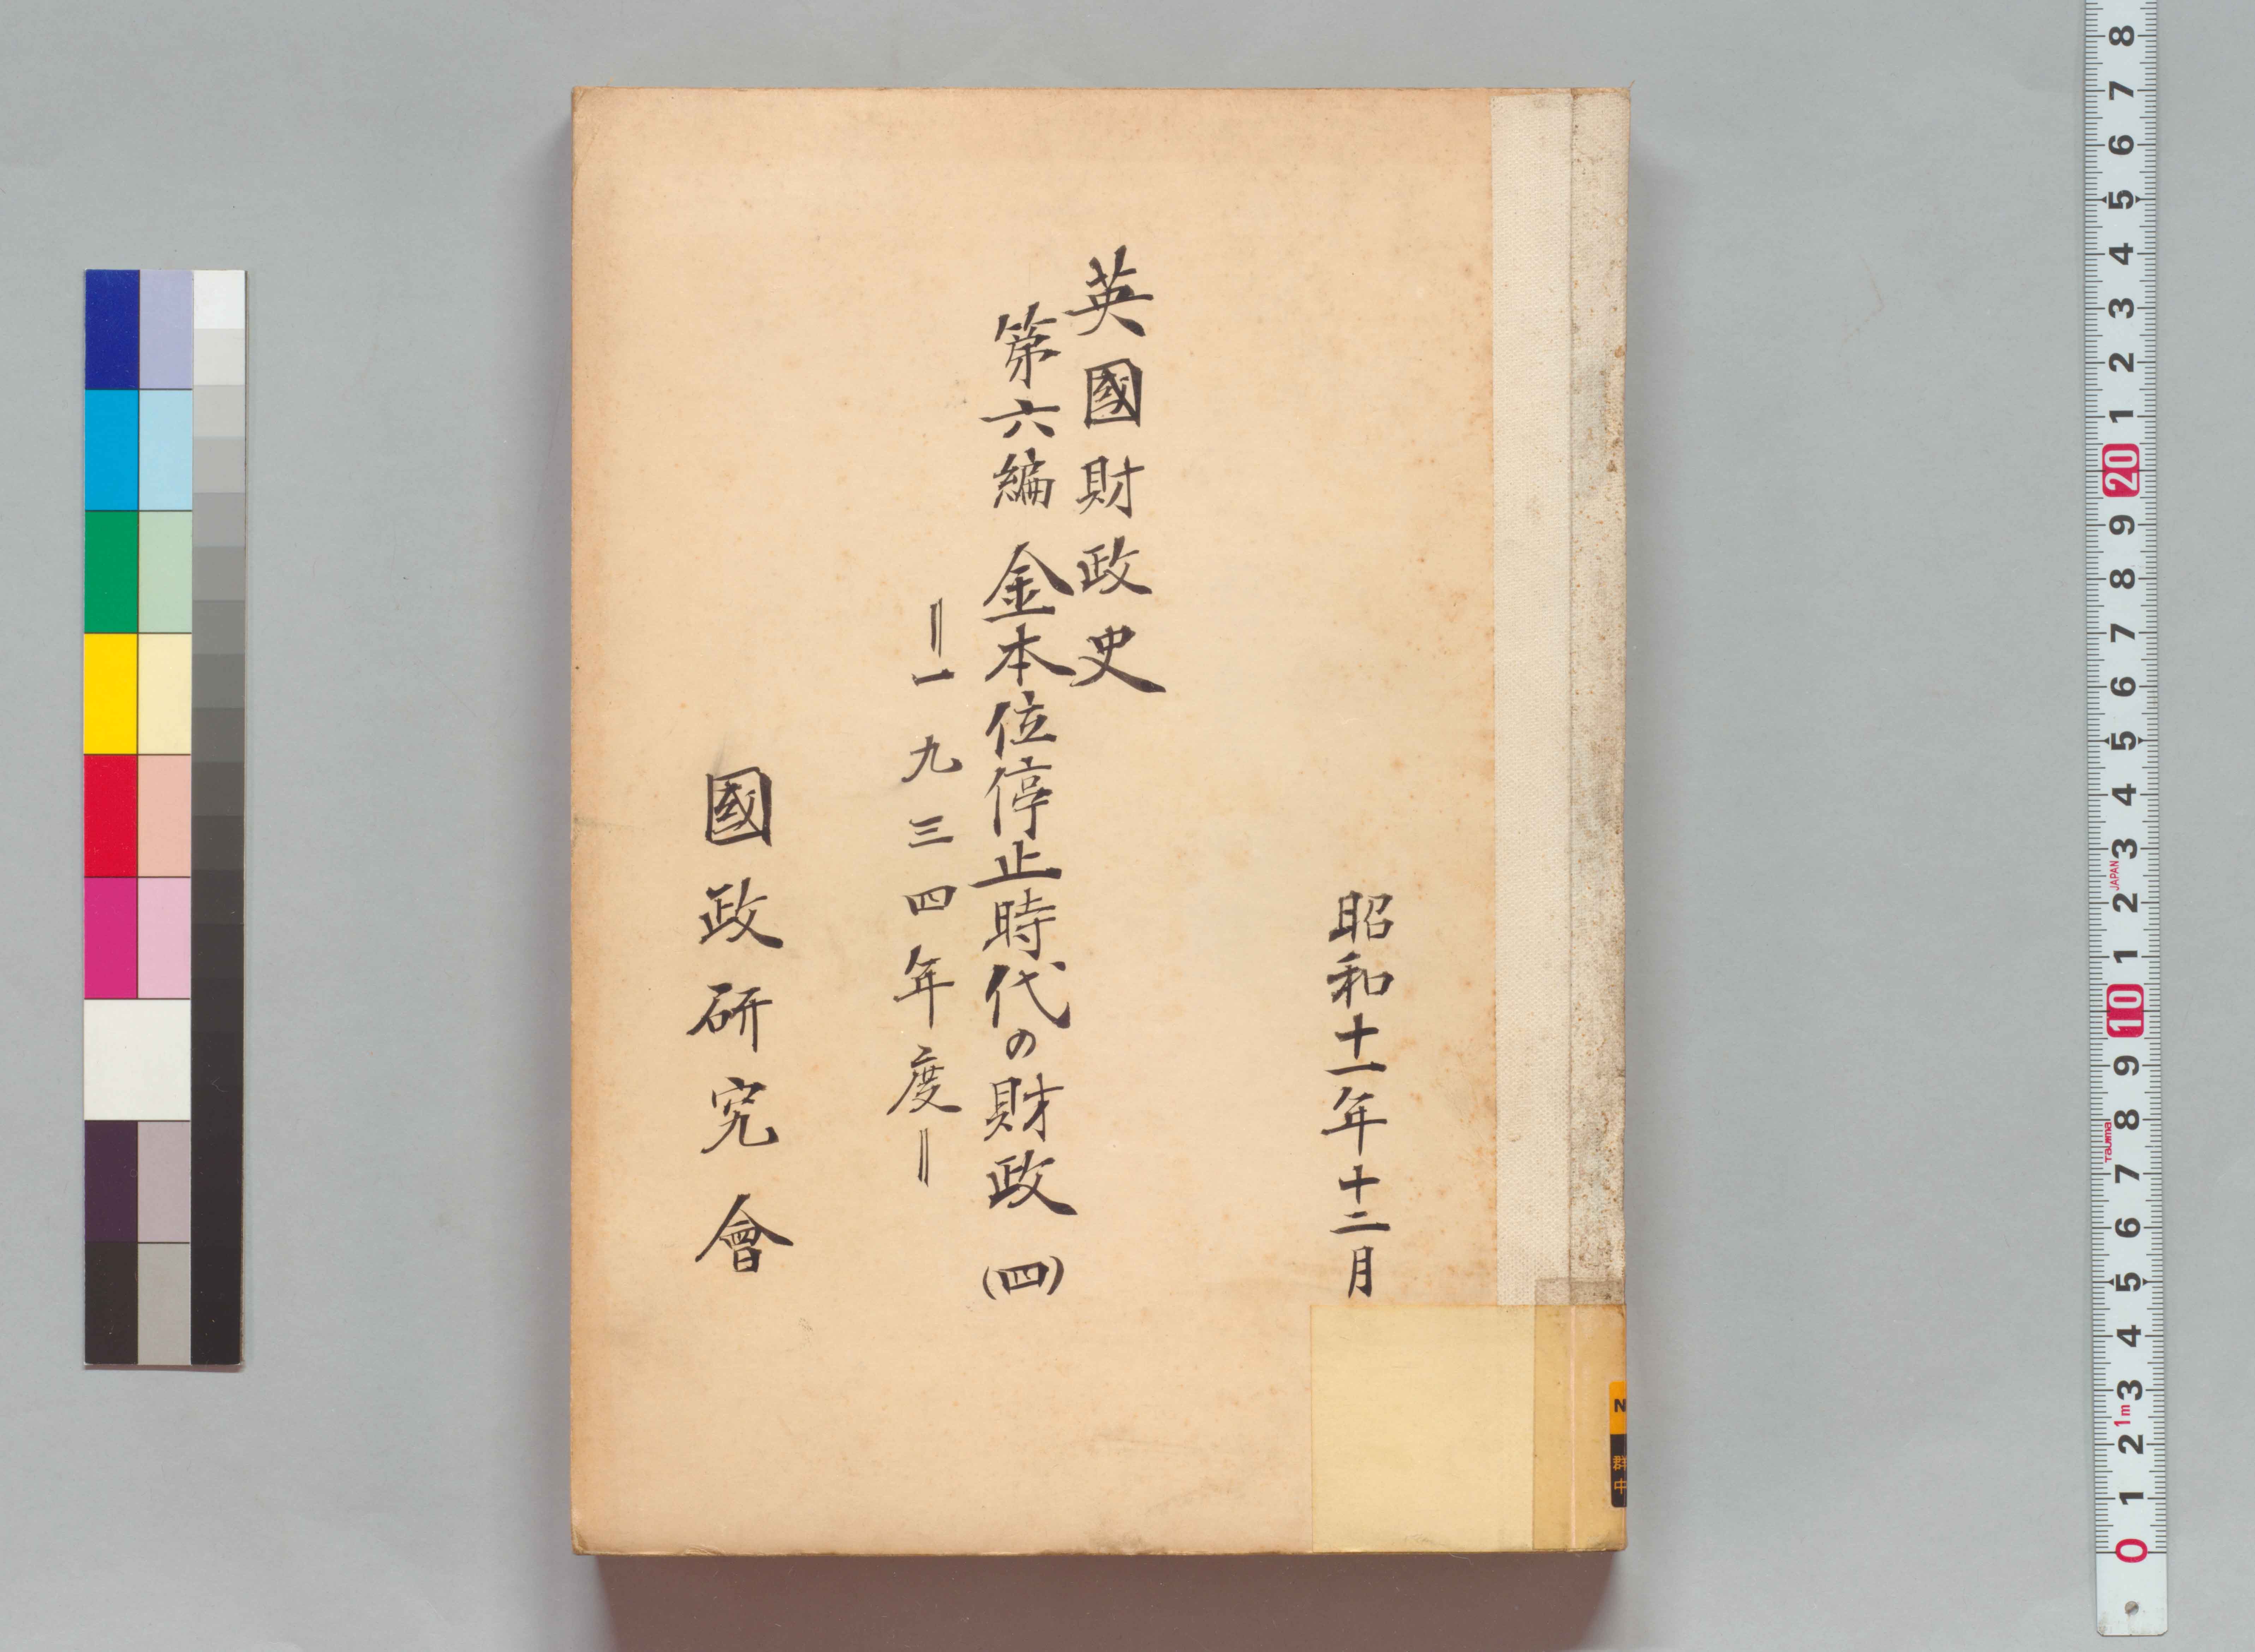 昭和十一年十二月
英國財政史
第六編 金本位停止時代の財政 (四)
‖一九三四年度‖
國政研究會
N
群
中
8
7
6
5
4
3
2
1
20
9
8
7
6
5
4
3
JAPAN
2
1
10
9
8
Tajima
7
6
5
4
3
1m
2
1
0